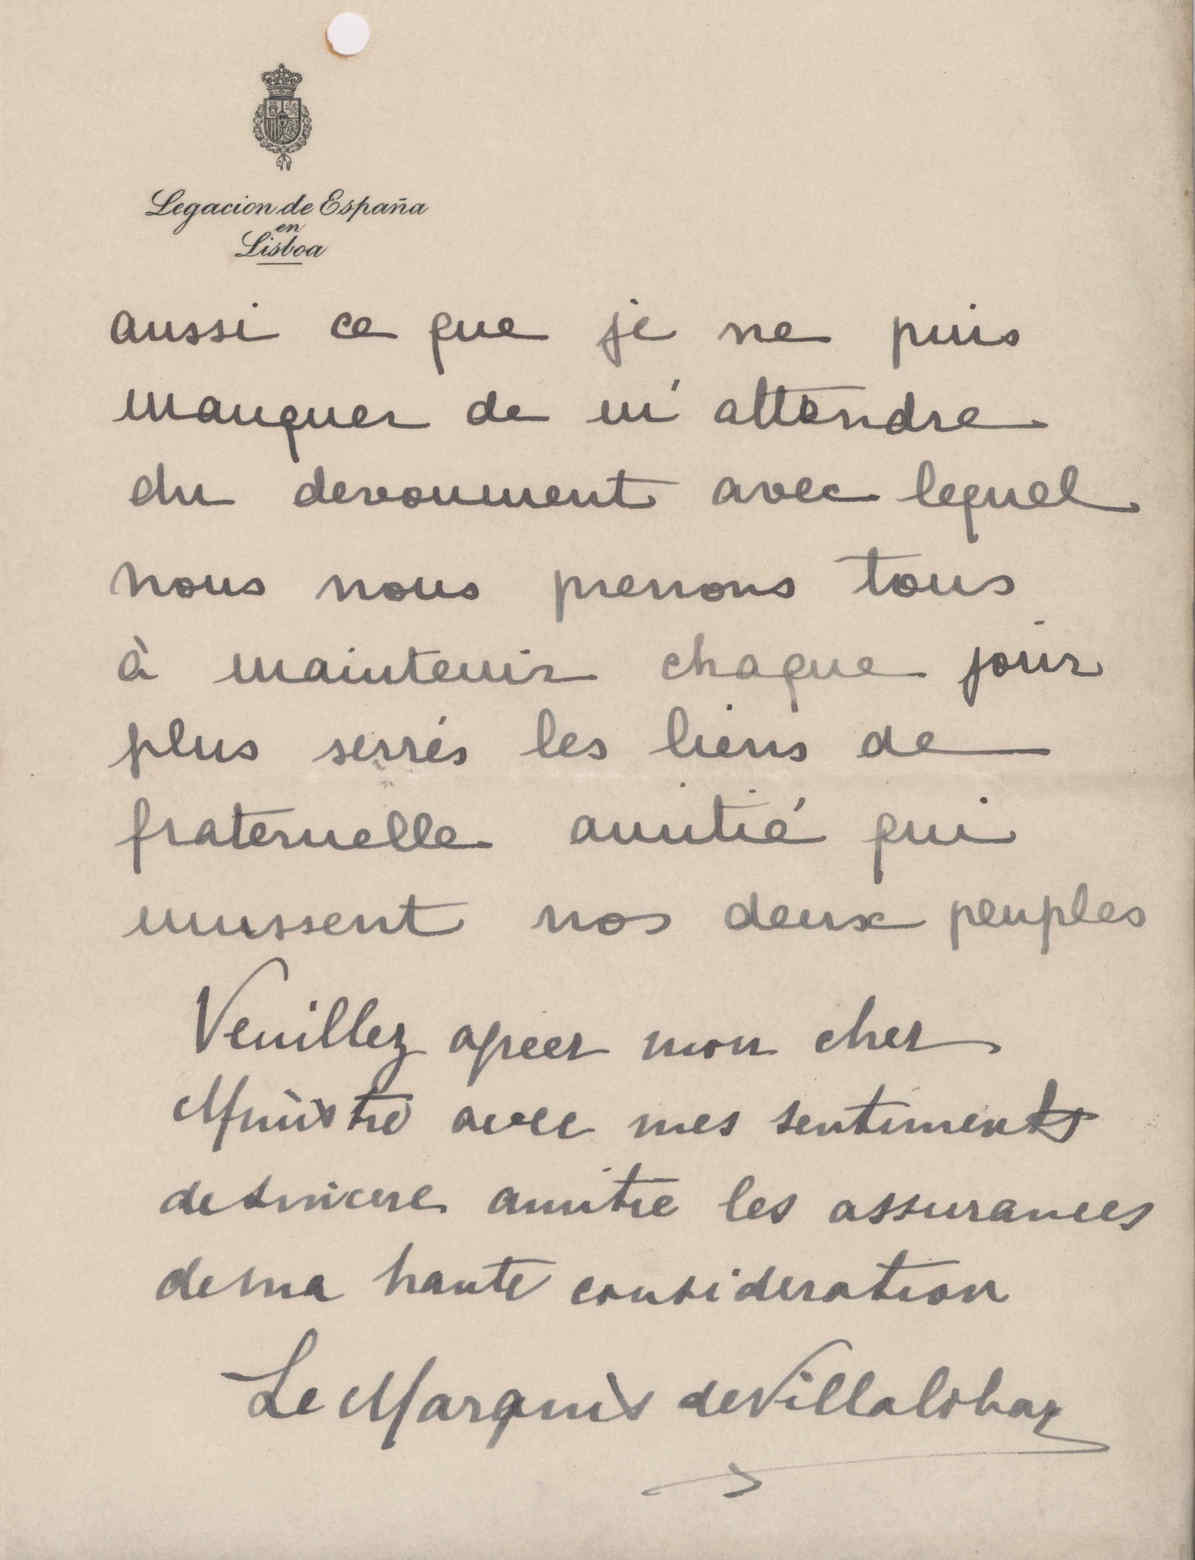 Legacion de España
en
Lisboa
aussi ce que je ne puis
manquer de m'attendre
du devoument avec lequel
nous nous prenons tous
à maintenir chaque jour
plus serrés les liens de
fraternelle amitié qui
unissent nos deux peuples
Veuillez agreer mon cher
Ministre avec mes sentiments
de sincere amitie les assurances
de ma haute consideration
Le Marquis de Villalobar